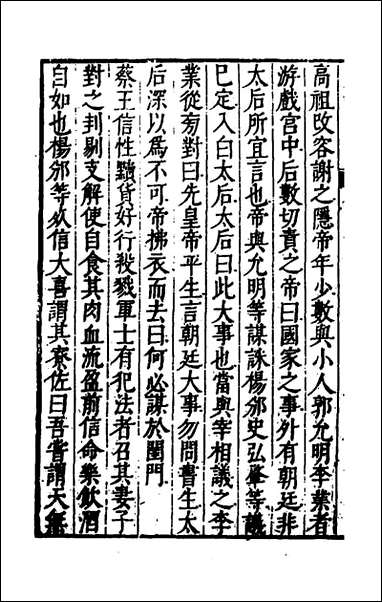 高祖改容謝之隱帝年少數與小人郭允明李業者
游戲宮中后數切責之帝曰國家之事外有朝廷非
太后所宜言也帝與允明等謀誅楊邠史弘肇等議
已定入白太后太后曰此大事也當與宰相議之李
業從旁對曰先皇帝平生言朝廷大事勿問書生太
后深以爲不可帝拂衣而去曰何必謀於閨門
蔡王信性黷貨好行殺戮軍士有犯法者召其妻子
對之刲剔支解使自食其肉血流盈前信命樂飲酒
自如也楊邠等死信大喜謂其寮佐曰吾嘗謂天無